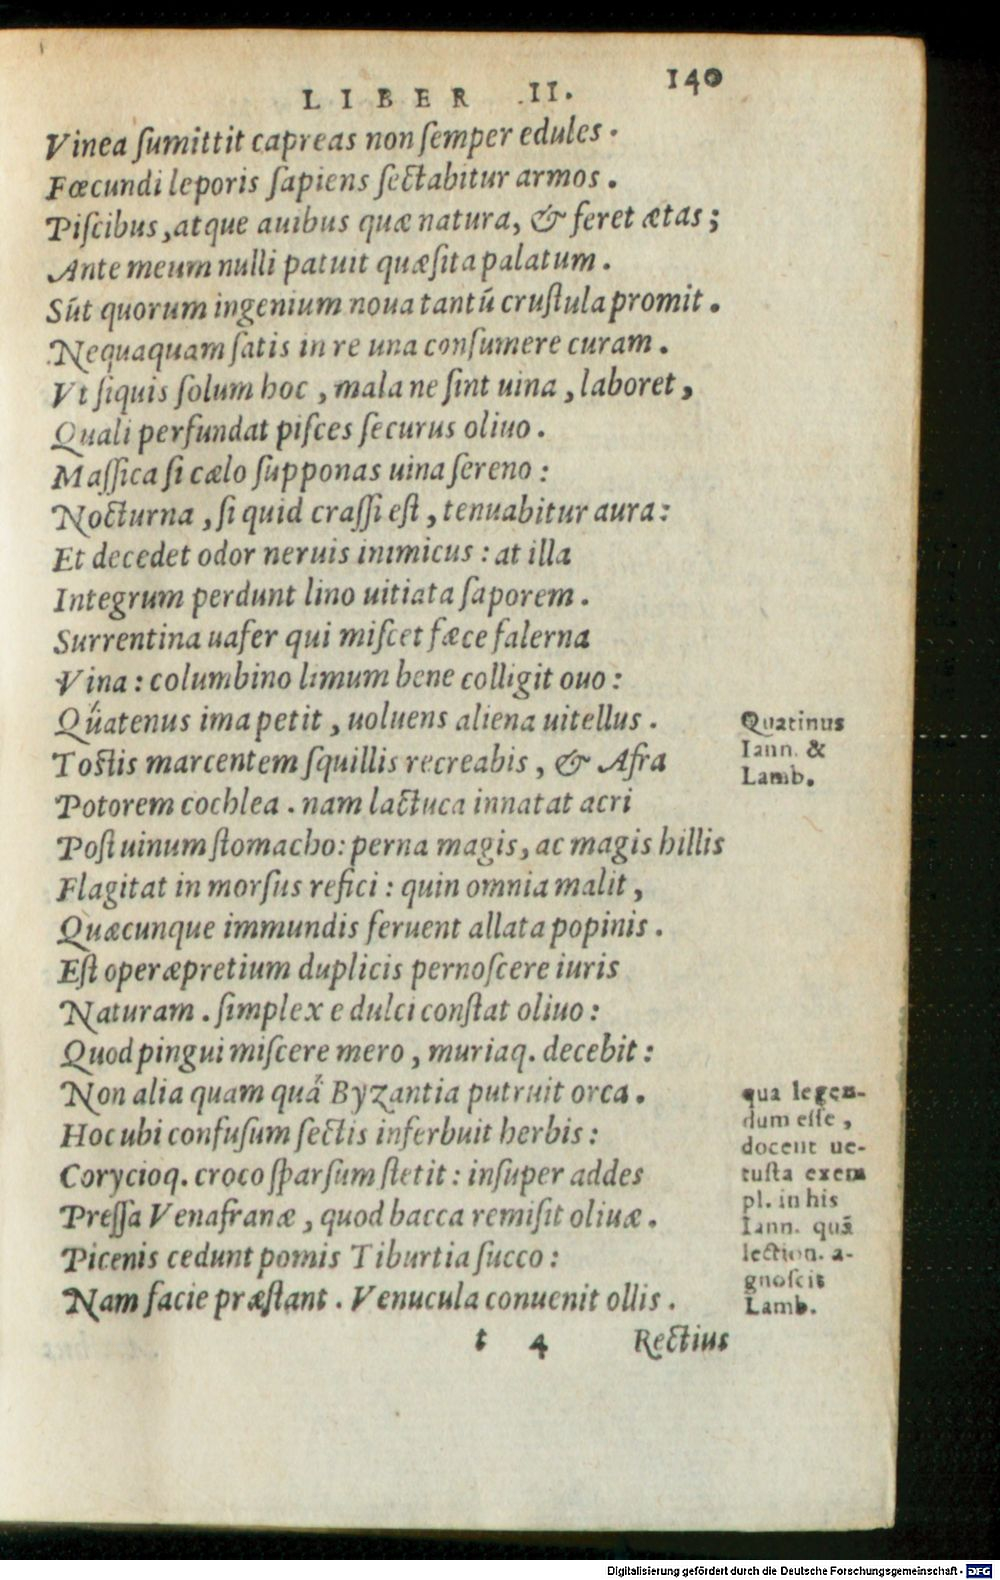 LIBER II. 140
Vinea ſumittit capreas non ſemper edules.
Fœcundi leporis ſapiens ſectabitur armos.
Piſcibus, atque auibus quæ natura, & feret ætas;
Ante meum nulli patuit quæſita palatum.
Sūt quorum ingenium noua tantū cruſtula promit.
Nequaquam ſatis in re una conſumere curam.
Vt ſiquis ſolum hoc, mala ne ſint uina, laboret,
Quali perfundat piſces ſecurus oliuo.
Maſſica ſi cælo ſupponas uina ſereno:
Nocturna, ſi quid craſſi eſt, tenuabitur aura:
Et decedet odor neruis inimicus: at illa
Integrum perdunt lino uitiata ſaporem.
Surrentina uafer qui miſcet fæce falerna
Vina: columbino limum bene colligit ouo:
Quatenus ima petit, uoluens aliena uitellus.
Quatinus
Iann. &
Lamb.
Toſtis marcentem ſquillis recreabis, & Afra
Potorem cochlea. nam lactuca innatat acri
Poſt uinum ſtomacho: perna magis, ac magis hillis
Flagitat in morſus refici: quin omnia malit,
Quæcunque immundis feruent allata popinis.
Eſt operæpretium duplicis pernoſcere iuris
Naturam. ſimplex e dulci conſtat oliuo:
Quod pingui miſcere mero, muriaq. decebit:
Non alia quam quā Byzantia putruit orca.
Hoc ubi confuſum ſectis inferbuit herbis:
Corycioq. croco ſparſum ſtetit: inſuper addes
Preſſa Venafranæ, quod bacca remiſit oliuæ.
Picenis cedunt pomis Tiburtia ſucco:
Nam facie præſtant. Venucula conuenit ollis.
qua legen-
dum eſſe,
docent ue-
tuſta exem
pl. in his
Iann. quā
lection. a-
gnoſcit
Lamb.
t 4 Rectius
Digitalisierung gefördert durch die Deutsche Forschungsgemeinschaft - DFG